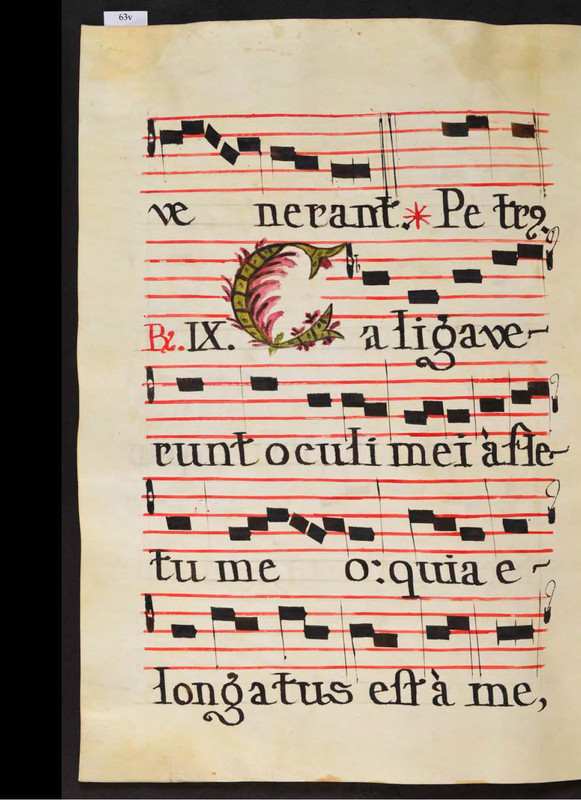 63v
ve nerant. * Petrꝰ.
℟. IX. Caligave-
runt oculi mei à fle-
tu meo: quia e-
longatus est à me,